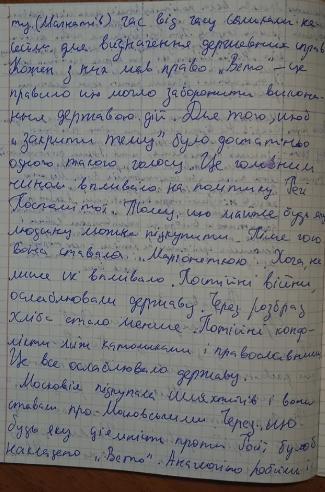 ту (Магнатів) час від часу скликали на
сейм для визначення державних справ
Кожен з них мав право „Вето" – це
правило що могло заборонити викона-
ння державою дій. Для того, щоб
„закрити тему" було достатньо
одного такого голосу. Це головним
чином впливало на політику Речі
Посполитої. Тому, що майже будь яку
людину можна підкупити. Після чого
вона ставала „Маріонеткою". Хоча, не
лише це впливало. Постійні війни,
ослаблювали державу. Через розбрат
хліба стало менше. Потійні конфл-
лікти між католиками і православними
Це все ослаблювало державу.
Московія підкупала шляхтичів і вони
ставали про-Московськими. Через, що
будь яку діяльність проти було б
накладено „Вето". Аналогічно робили і